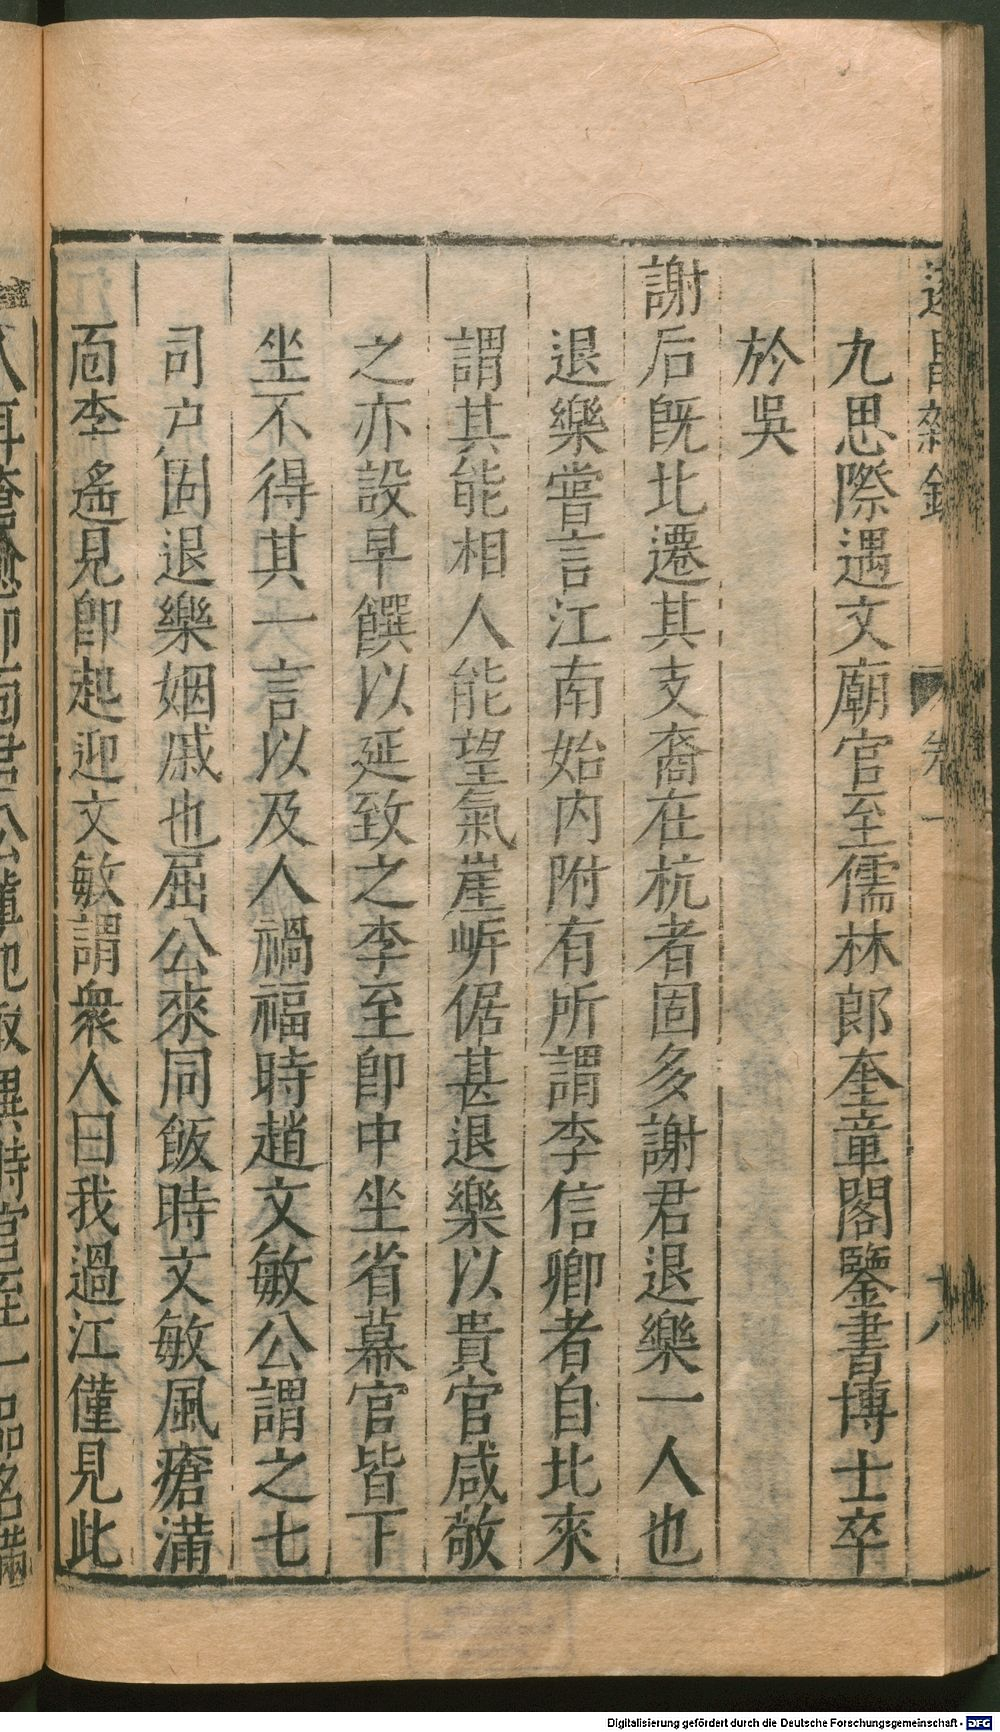 遂昌雜錄
卷一
九思際遇文廟官至儒林郎奎章閣鑒書博士卒
於吳
謝后旣北遷其支裔在杭者固多謝君退樂一人也
退樂嘗言江南始內附有所謂李信卿者自北來
謂其能相人能望氣崖岸倨甚退樂以貴官咸敬
之亦設早饌以延致之李至卽中坐省幕官皆下
坐不得其一言以及人禍福時趙文敏公謂之七
司户固退樂姻戚也屈公來同飯時文敏風瘡滿
面李遙見卽起迎文敏謂衆人曰我過江僅見此
人耳瘡愈卽面君公輩記取異時官至一品名滿
Digitalisierung gefördert durch die Deutsche Forschungsgemeinschaft - DFG